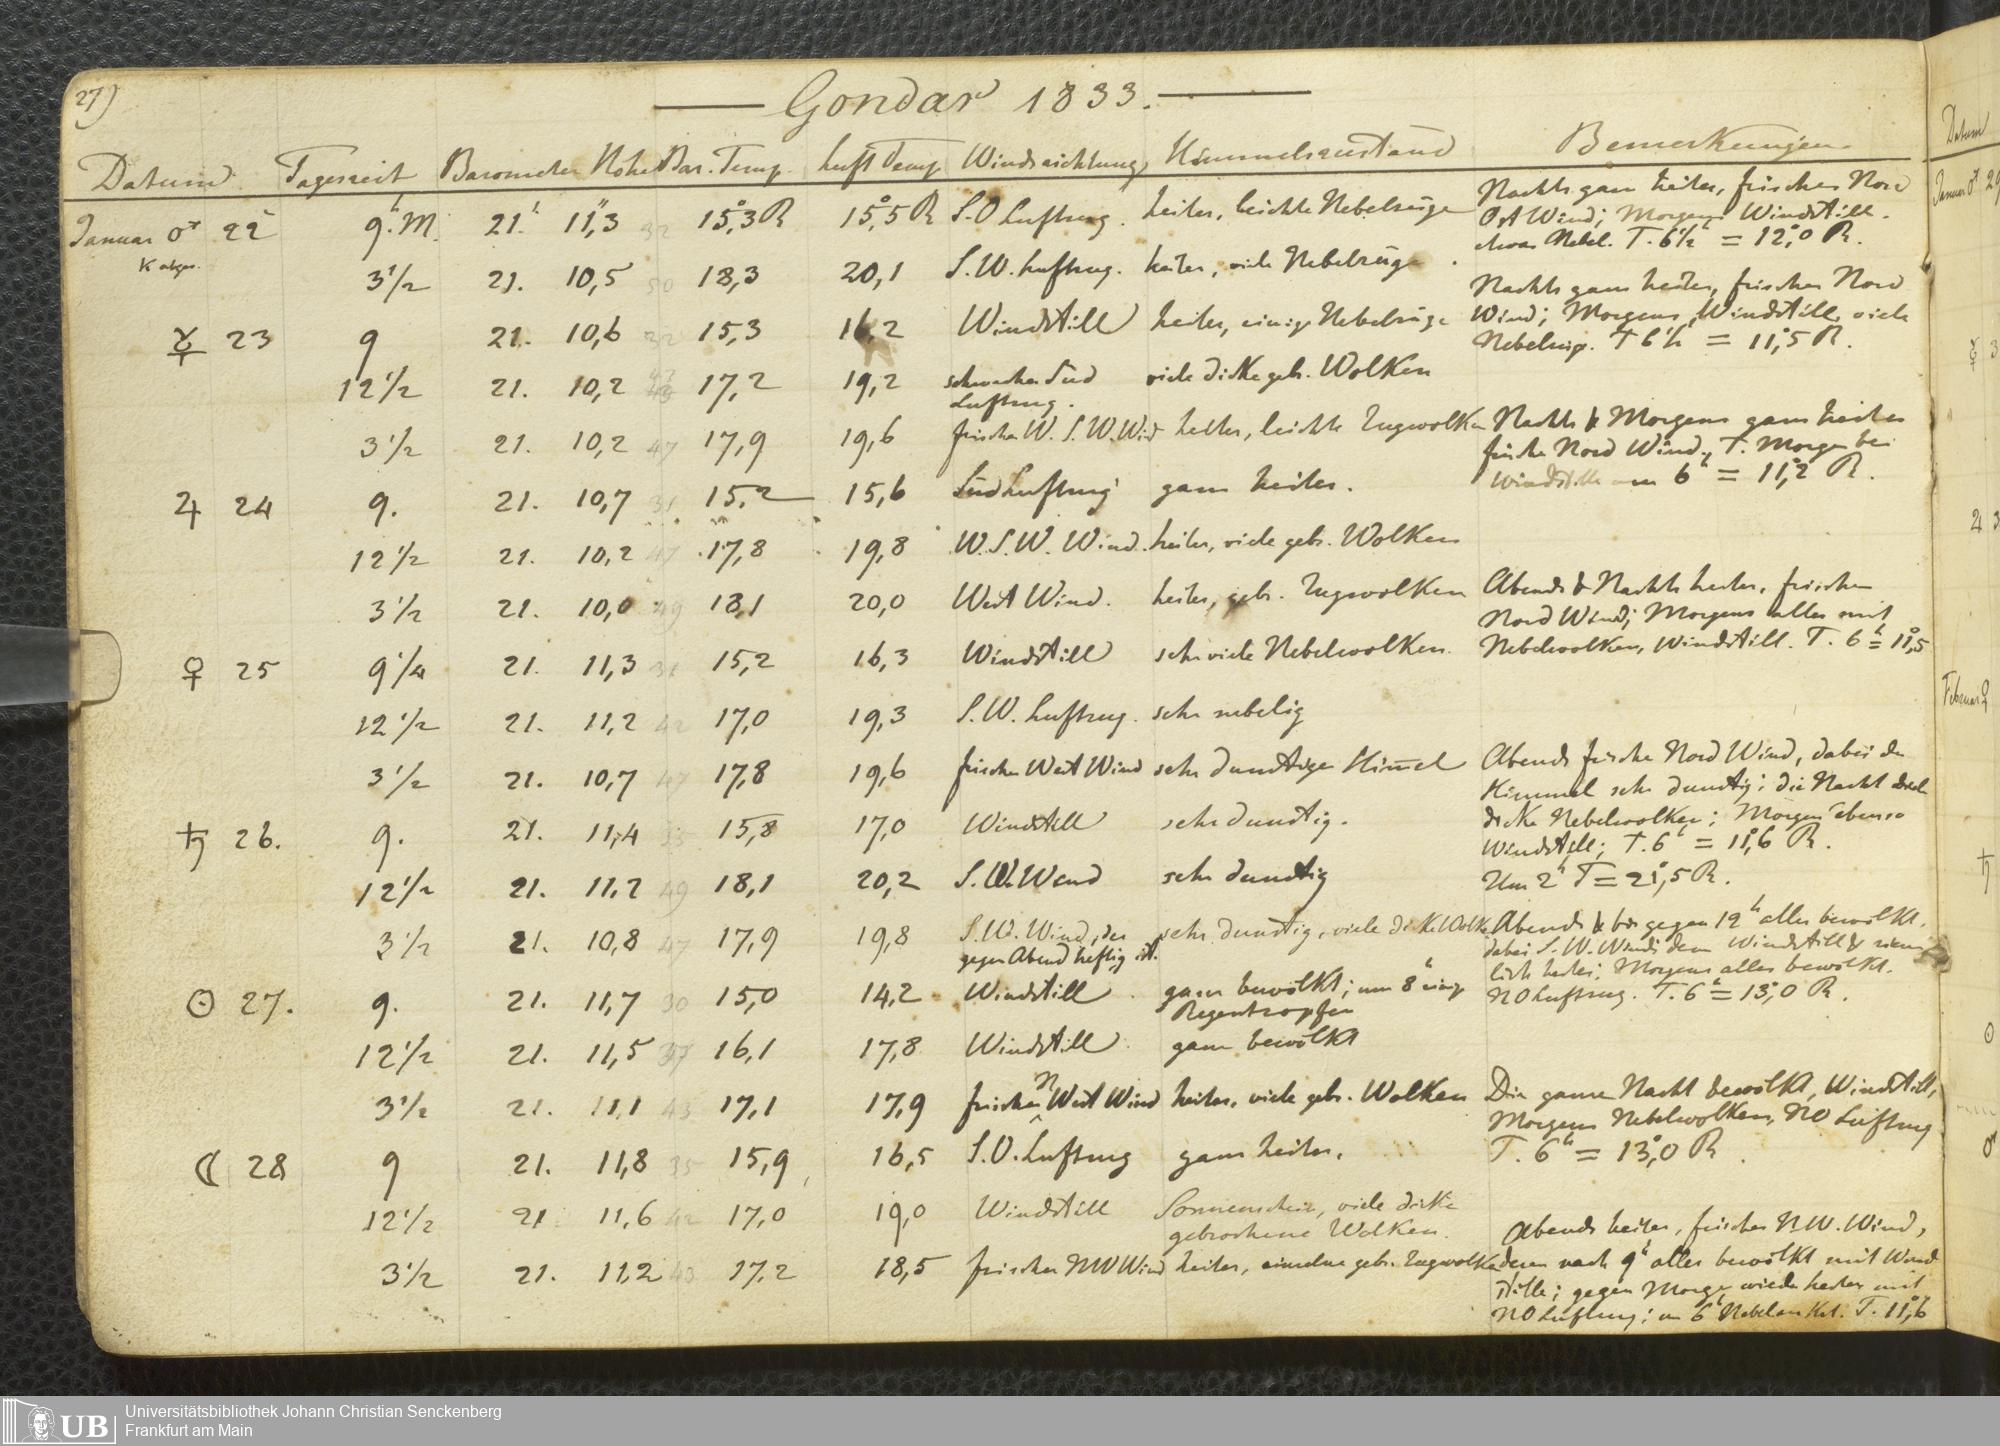 27)
Gondar 1833.
Datum Tagerzeit Barometer Höhe Bar. Temp. Luft Temp Windrichtung Himmelszustand Bemerkungen
Januar ♂ 22 9h M. 21." 11,‴3 32 15,°3 R 15,°5 R S.O Luftzug. heiter, leichte Nebelzüge
Nachts ganz heiter, frischer Nord
Ost Wind; Morgens Windstill.
etwas Nebel. T. 6½h = 12,°0 R.
3½ 21. 10,5 50 18,3 20,1 S.W. Luftzug. heiter, viele Nebelzüge.
Nachts ganz heiter, frischer Nord
Wind; Morgens Windstill, viele
T 6½h = 11,°5 R.
☿ 23 9 21. 10,6 32 15,3 16,2 Windstill heiter, einige Nebelzüge
12½ 21. 10,2 17,2 19,2 schwacher Süd viele dicke geb. Wolken
Luftzug.
3½ 21. 10,2 47 17,9 19,6 frischer W.S.W. Wind heiter, leichte Zugwolken
Nachts & Morgens ganz heiter
frischer Nord Wind, T. Morgen bei
Windstille um 6h = 11,°2 R.
♃ 24 9. 21. 10,7 31 15,2 15,6 Süd Luftzug ganz heiter.
12½ 21. 10,2 47 17,8 19,8 W.S.W. Wind. heiter, viele geb. Wolken
3½ 21. 10,0 49 18,1 20,0 West Wind. heiter, geb. Zugwolken
Abends & Nachts heiter, frischer
Nord Wind; Morgens alles mit
Nebelwolken, Windstill. T. 6h = 11,°5
♀ 25 9¼ 21. 11,3 31 15,2 16,3 Windstill sehr viele Nebelwolken.
12½ 21. 11,2 42 17,0 19,3 S.W. Luftzug. sehr nebelig
3½ 21. 10,7 47 17,8 19,6 frischer West Wind sehr dunstiger Him̅el
Abends frischer Nord Wind, dabei der
Himmel sehr dunstig; die Nacht
dicke Nebelwolken; Morgen ebenso
Windstill; T. 6h = 11,°6 R.
Um 2h T = 21,°5 R.
♄ 26. 9. 21. 11,4 33 15,8 17,0 Windstill sehr dunstig.
12½ 21. 11,2 49 18,1 20,2 S.W. Wind sehr dunstig
3½ 21. 10,8 47 17,9 19,8 S.W. Wind, der sehr dunstig, viele dicke Wolken
gegen Abend heftig ist.
Abends & bis gegen 12h alles bewölkt.
dabei S.W. Wind; dann Windstill & ziem
lich heiter; Morgens alles bewölkt.
NO Luftzug. T. 6h = 13,°0 R.
☉ 27. 9. 21. 11,7 30 15,0 14,2 Windstill ganz bewölkt; um 8h einige
Regentropfen
12½ 21. 11,5 37 16,1 17,8 Windstill ganz bewölkt
3½ 21. 11,1 43 17,1 17,9 frischer N West Wind heiter, viele geb. Wolken
Die ganze Nacht bewölkt, Windstill,
Morgens Nebelwolken, NO Luftzug
T. 6h = 13,°0 R
☾ 28 9 21. 11,8 35 15,9 16,5 S.O. Luftzug ganz heiter.
12½ 21 11,6 42 17,0 19,0 Windstill Sonnenschein, viele dicke
gebrochene Wolken.
3½ 21. 11,2 43 17,2 18,5 frischer NW Wind heiter, einzelne geb. Zugwolken
Abends heiter, frischer N.W. Wind,
dann nach 9h alles bewölkt mit Wind
stille; gegen Morgen wieder heiter mit
NO Luftzug; um 6h T. 11,°6
Datum
Januar ♂ 29
☿ 3
♃ 3
Februar ♀
♄
☉
UB
Universitätsbibliothek Johann Christian Senckenberg
Frankfurt am Main